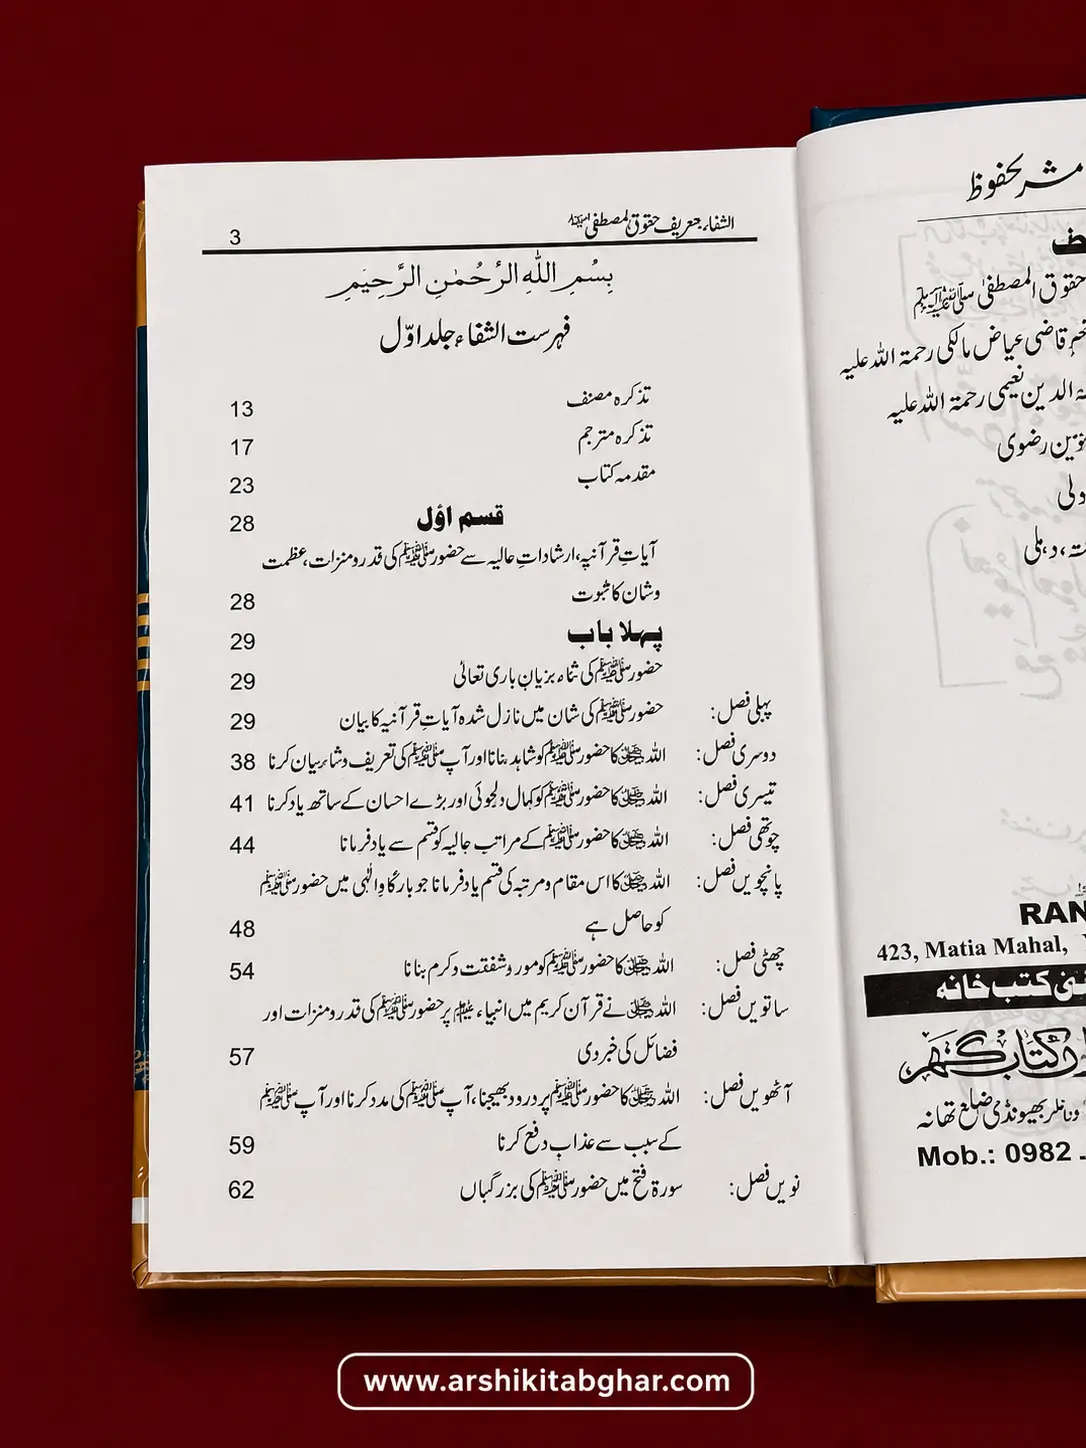 الشفاء بتعریف حقوق المصطفیٰ ﷺ 3
بِسْمِ اللّٰهِ الرَّحْمٰنِ الرَّحِیْمِ
فہرست الشفاء جلد اوّل
تذکرہ مصنف 13
تذکرہ مترجم 17
مقدمہ کتاب 23
قسم اوّل 28
آیاتِ قرآنیہ، ارشاداتِ عالیہ سے حضور ﷺ کی قدر و منزلت، عظمت
و شان کا ثبوت 28
پہلا باب 29
حضور ﷺ کی ثناء بزبانِ باری تعالیٰ 29
پہلی فصل: حضور ﷺ کی شان میں نازل شدہ آیاتِ قرآنیہ کا بیان 29
دوسری فصل: اللہ ﷻ کا حضور ﷺ کو شاہد بنانا اور آپ ﷺ کی تعریف و ثناء بیان کرنا 38
تیسری فصل: اللہ ﷻ کا حضور ﷺ کو کمال دلجوئی اور بڑے احسان کے ساتھ یاد کرنا 41
چوتھی فصل: اللہ ﷻ کا حضور ﷺ کے مراتب جالیہ کو قسم سے یاد فرمانا 44
پانچویں فصل: اللہ ﷻ کا اس مقام و مرتبہ کی قسم یاد فرمانا جو بارگاہِ الٰہی میں حضور ﷺ
کو حاصل ہے 48
چھٹی فصل: اللہ ﷻ کا حضور ﷺ کو مورد شفقت و کرم بنانا 54
ساتویں فصل: اللہ ﷻ نے قرآن کریم میں انبیاء علیہم السلام پر حضور ﷺ کی قدر و منزلت اور
فضائل کی خبر دی 57
آٹھویں فصل: اللہ ﷻ کا حضور ﷺ پر درود بھیجنا، آپ ﷺ کی مدد کرنا اور آپ ﷺ
کے سبب سے عذاب دفع کرنا 59
نویں فصل: سورۃ فتح میں حضور ﷺ کی بزرگیاں 62
محفوظ
حقوق المصطفیٰ ﷺ
قاضی عیاض مالکی رحمۃ اللہ علیہ
الدین نعیمی رحمۃ اللہ علیہ
رضوی
دہلی
RAN
423, Matia Mahal,
کتب خانہ
کتاب گھر
بھیونڈی ضلع تھانہ
Mob.: 0982
www.arshikitabghar.com